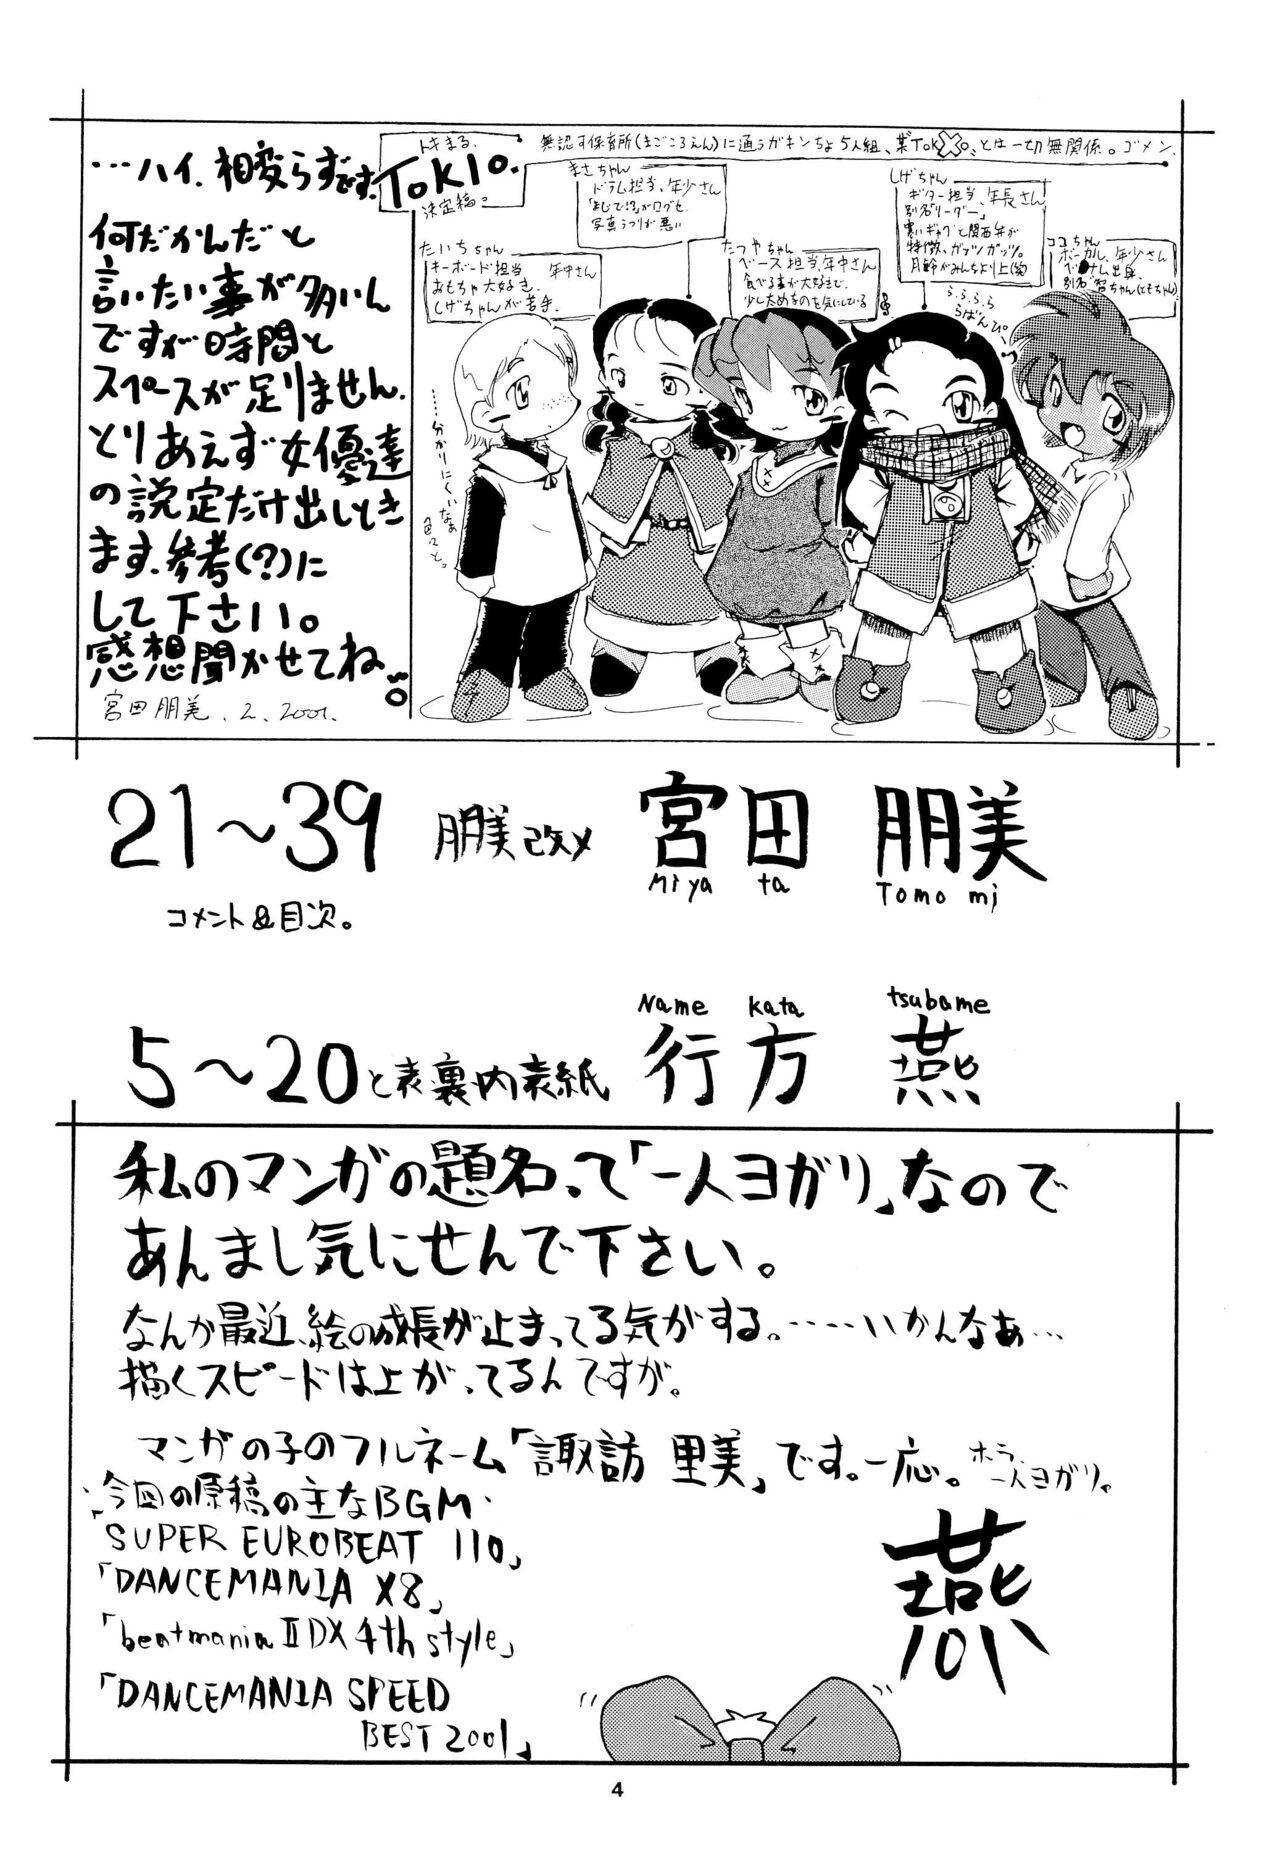 …ハイ、相変らずです。
何だかんだと
言いたい事が多いん
ですが時間と
スペースが足りません。
とりあえず女優達
の説定だけ出しとき
ます。参考(?)に
して下さい。
感想聞かせてね。
宮田朋美.2.2001.
トキまる。
TOKIO.
決定稿。
無認可保育所(まごころえん)に通うガキンちょ5人組、
とは一切無関係。ゴメン。
たいちちゃん
キーボード担当 年中さん
おもちゃ大好き。
しげちゃんが苦手。
まさちゃん
ドラム担当、年少さん
「まじで!?」が口グセ。
写真うつりが悪い
たつやちゃん
ベース担当、年中さん
食べる事が大好きで、
少し太めなのも気にしている
しげちゃん
ギター担当、年長さん
別名「リーダー」
寒いギャグと関西弁が
特徴、ガッツガッツ。
ココちゃん
ボーカル、年少さん
ベトナム出身
別名 智ちゃん(ともちゃん)
らららら
らばんぴ。
……分かりにくいなぁ
色々と。
21〜39 朋美改メ 宮田 朋美
Miya ta Tomo mi
コメント&目次。
Name kata tsubame
5〜20と表裏内表紙 行方 燕
私のマンガの題名って「一人ヨガリ」なので
あんまし気にせんで下さい。
なんか最近、絵の成長が止まってる気がする。……いかんなぁ…
描くスピードは上がってるんですが。
マンガの子のフルネーム「諏訪 里美」です。一応。
ホラ、
一人ヨガリ。
今回の原稿の主なBGM.
「SUPER EUROBEAT 110」
「DANCEMANIA X8」
「beatmania II DX 4th style」
「DANCEMANIA SPEED
BEST 2001」
燕
4